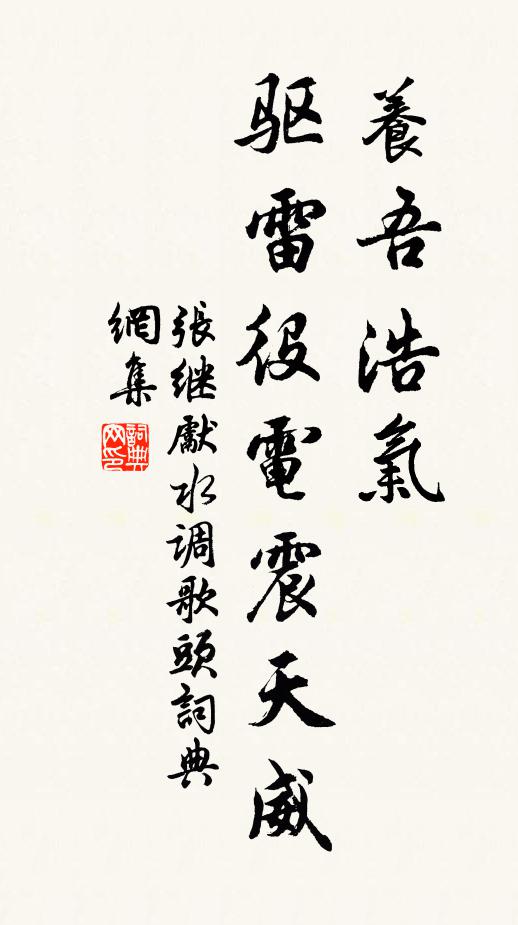 養吾浩氣
驱雷役電震天威
張继獻水调歌頭詞典
網集
詞典网印